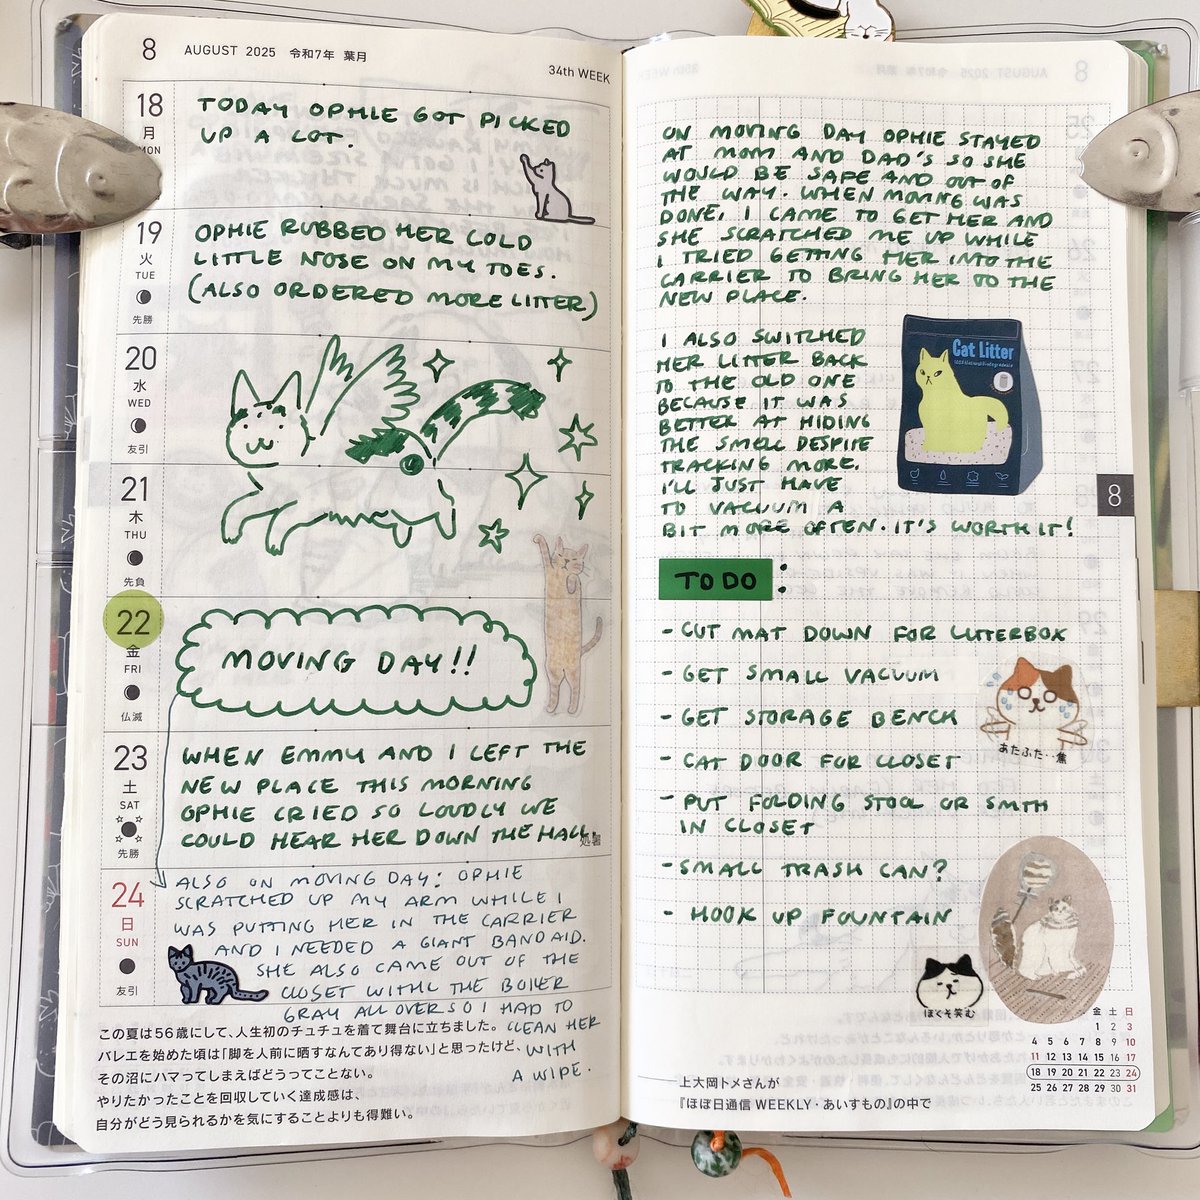 8 AUGUST 2025 令和7年 葉月
34th WEEK
18
月
MON
TODAY OPHIE GOT PICKED
UP A LOT.
19
火
TUE
先勝
OPHIE RUBBED HER COLD
LITTLE NOSE ON MY TOES.
(ALSO ORDERED MORE LITTER)
20
水
WED
友引
21
木
THU
先負
22
金
FRI
仏滅
MOVING DAY!!
23
土
SAT
先勝
WHEN EMMY AND I LEFT THE
NEW PLACE THIS MORNING
OPHIE CRIED SO LOUDLY WE
COULD HEAR HER DOWN THE HALL.
処暑
24
日
SUN
友引
ALSO ON MOVING DAY: OPHIE
SCRATCHED UP MY ARM WHILE I
WAS PUTTING HER IN THE CARRIER
AND I NEEDED A GIANT BANDAID.
SHE ALSO CAME OUT OF THE
CLOSET WITH THE BOILER
GRAY ALL OVER SO I HAD TO
CLEAN HER
WITH
A WIPE.
この夏は56歳にして、人生初のチュチュを着て舞台に立ちました。
バレエを始めた頃は「脚を人前に晒すなんてあり得ない」と思ったけど、
その沼にハマってしまえばどうってことない。
やりたかったことを回収していく達成感は、
自分がどう見られるかを気にすることよりも得難い。
ON MOVING DAY OPHIE STAYED
AT MOM AND DAD'S SO SHE
WOULD BE SAFE AND OUT OF
THE WAY. WHEN MOVING WAS
DONE, I CAME TO GET HER AND
SHE SCRATCHED ME UP WHILE
I TRIED GETTING HER INTO THE
CARRIER TO BRING HER TO THE
NEW PLACE.
I ALSO SWITCHED
HER LITTER BACK
TO THE OLD ONE
BECAUSE IT WAS
BETTER AT HIDING
THE SMELL DESPITE
TRACKING MORE.
I'LL JUST HAVE
TO VACUUM A
BIT MORE OFTEN. IT'S WORTH IT!
Cat Litter
8
TO DO :
- CUT MAT DOWN FOR LITTERBOX
- GET SMALL VACUUM
- GET STORAGE BENCH
- CAT DOOR FOR CLOSET
- PUT FOLDING STOOL OR SMTH
IN CLOSET
- SMALL TRASH CAN?
- HOOK UP FOUNTAIN
あたふた・・焦
ほくそ笑む
金 土 日
1 2 3
4 5 6 7 8 9 10
11 12 13 14 15 16 17
18 19 20 21 22 23 24
25 26 27 28 29 30 31
──上大岡トメさんが
『ほぼ日通信 WEEKLY・あいすもの』の中で